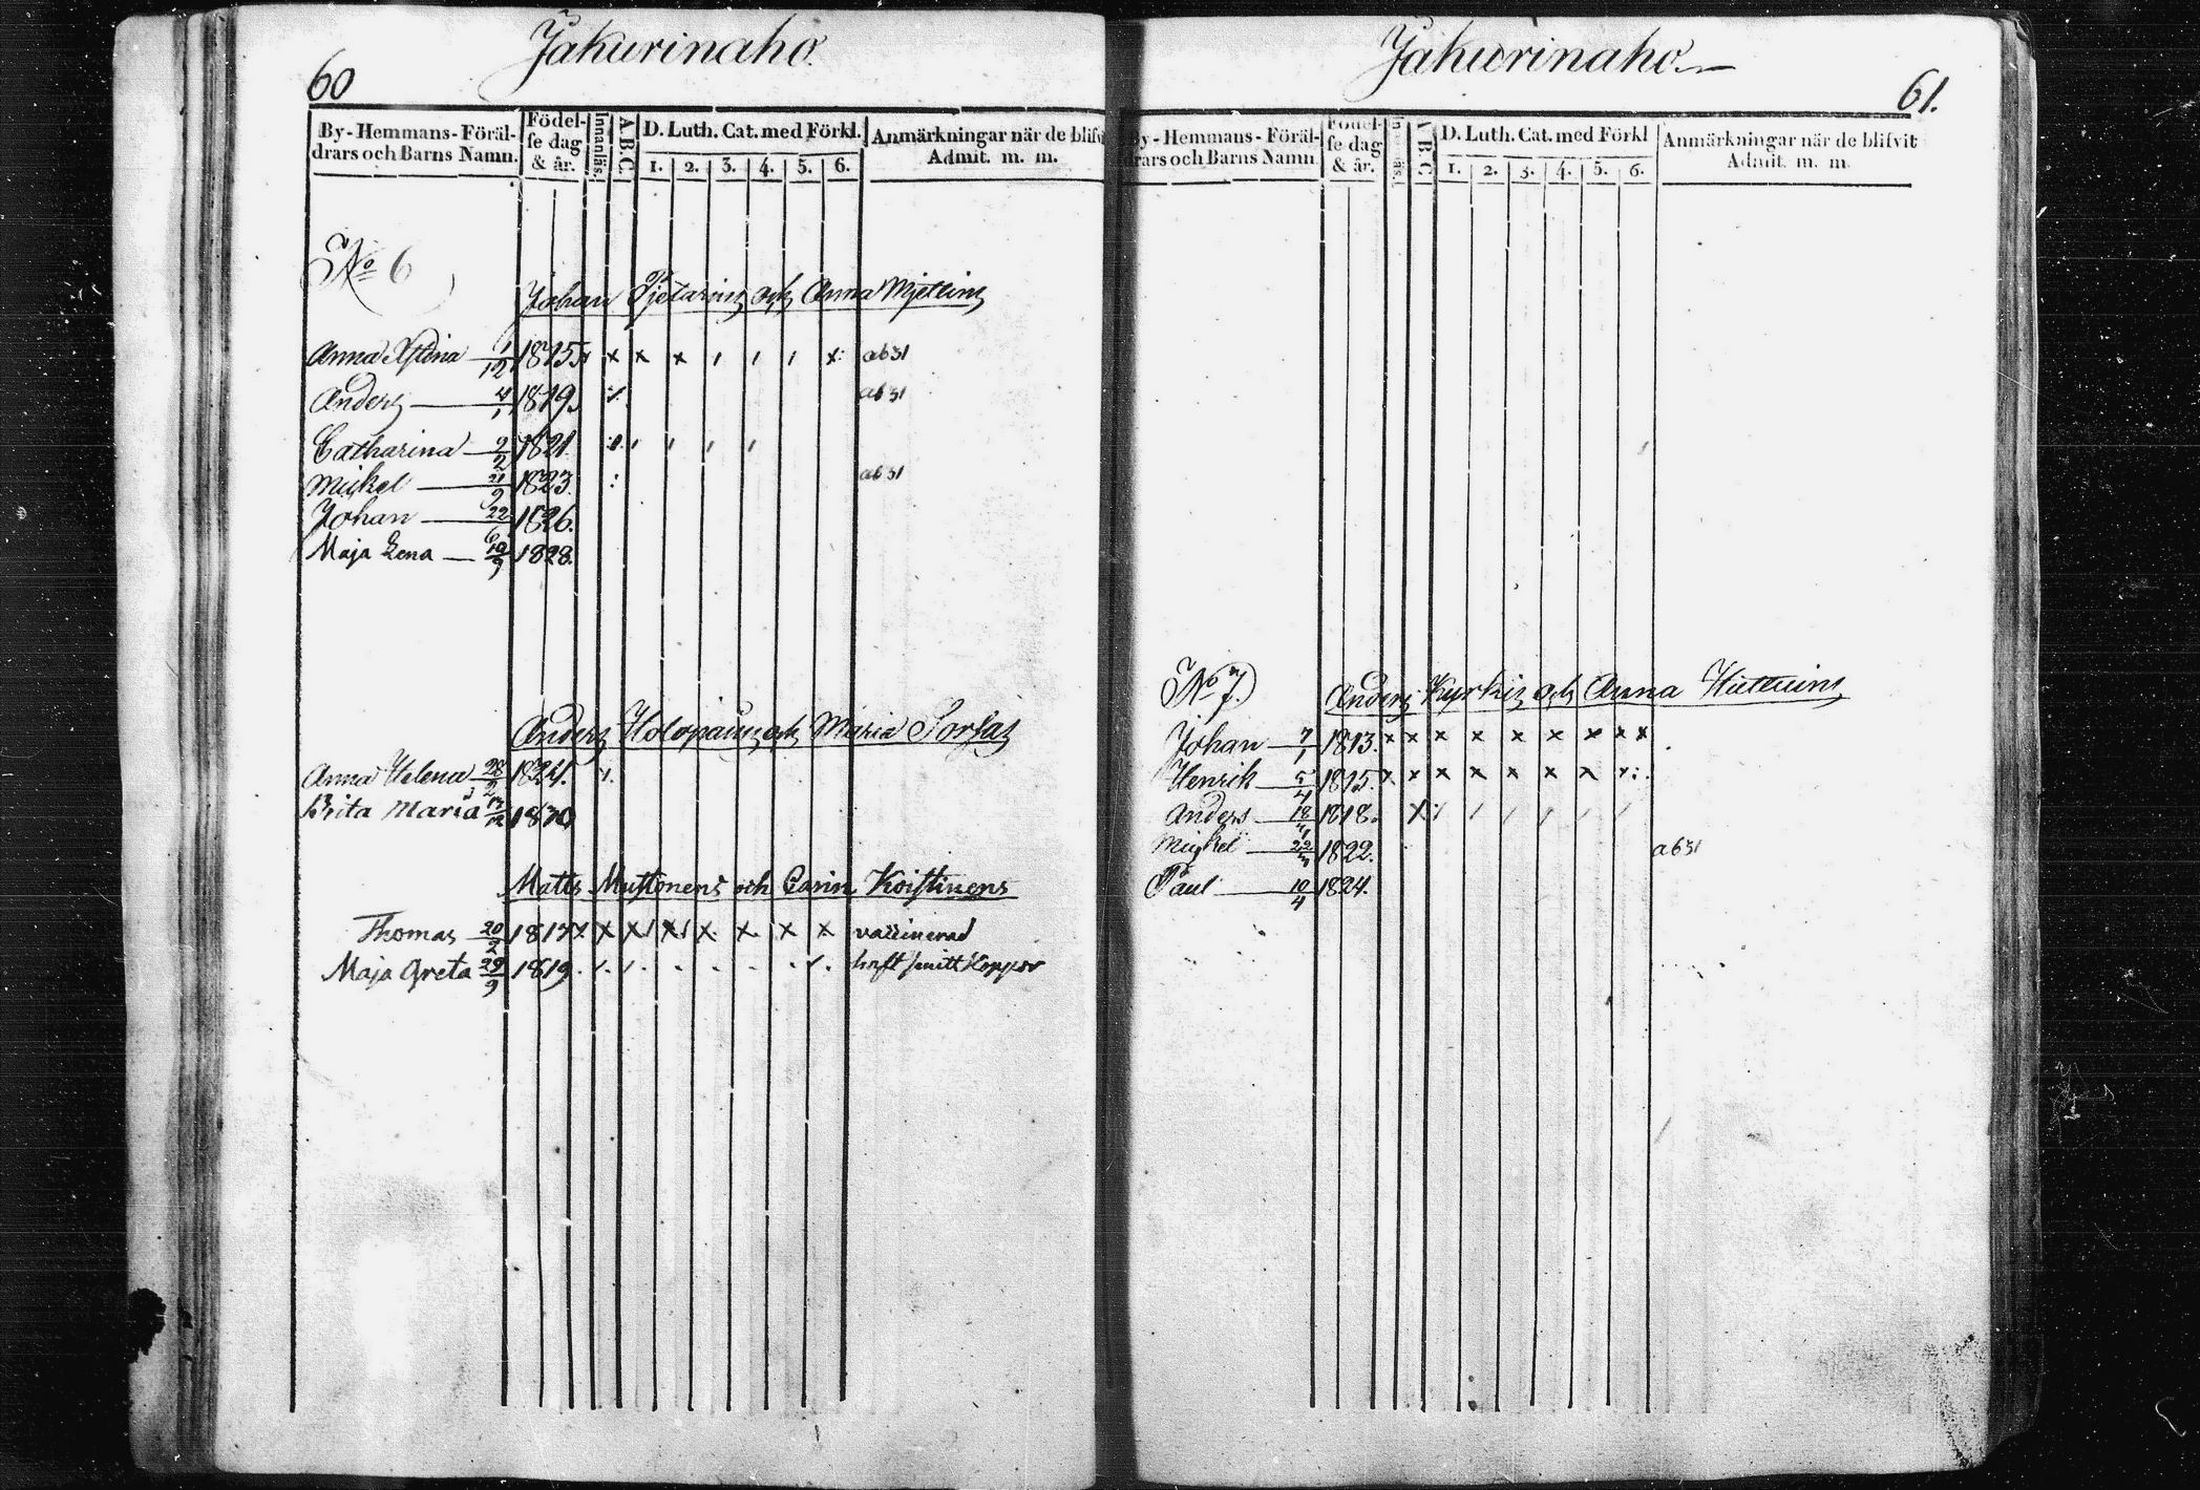 60
Jakurinaho
By-Hemmans-Föräl-
drars och Barns Namn.
Födel-
se dag
& år.
Innanläs.
A.B.C.
D. Luth. Cat. med Förkl.
1. 2. 3. 4. 5. 6.
Anmärkningar när de blifvit
Admit. m. m.
No 6
Johan Pjetarins och Anna
Anna Xstina 1/12 1815 x x x x ab31
Anders 4/1 1819. ab31
Catharina 2/2 1821.
Mickel 21/9 1823. ab31
Johan 22/6 1826.
Maja Lena 10/9 1828.
Anders Holopains och Maria Sorsas
Anna Helena 28/2 1824.
Brita Maria 1830
Matts Mustonens och Carin Koistinens
Thomas 20/2 1817 x x x x x x x x vaccinerad
Maja Greta 29/9 1819. haft Koppor
Jakurinaho
61.
By-Hemmans-Föräl-
drars och Barns Namn.
Födel-
se dag
& år.
A B C
D. Luth. Cat. med Förkl
1. 2. 3. 4. 5. 6.
Anmärkningar när de blifvit
Admit. m. m.
No 7.
Anders Kyrkis och Anna
Johan 7/1 1813. x x x x x x x x x
Henrik 5/4 1815. x x x x x x x
Anders 1818.
Mickel 1822. ab31
Paul 10/4 1824.